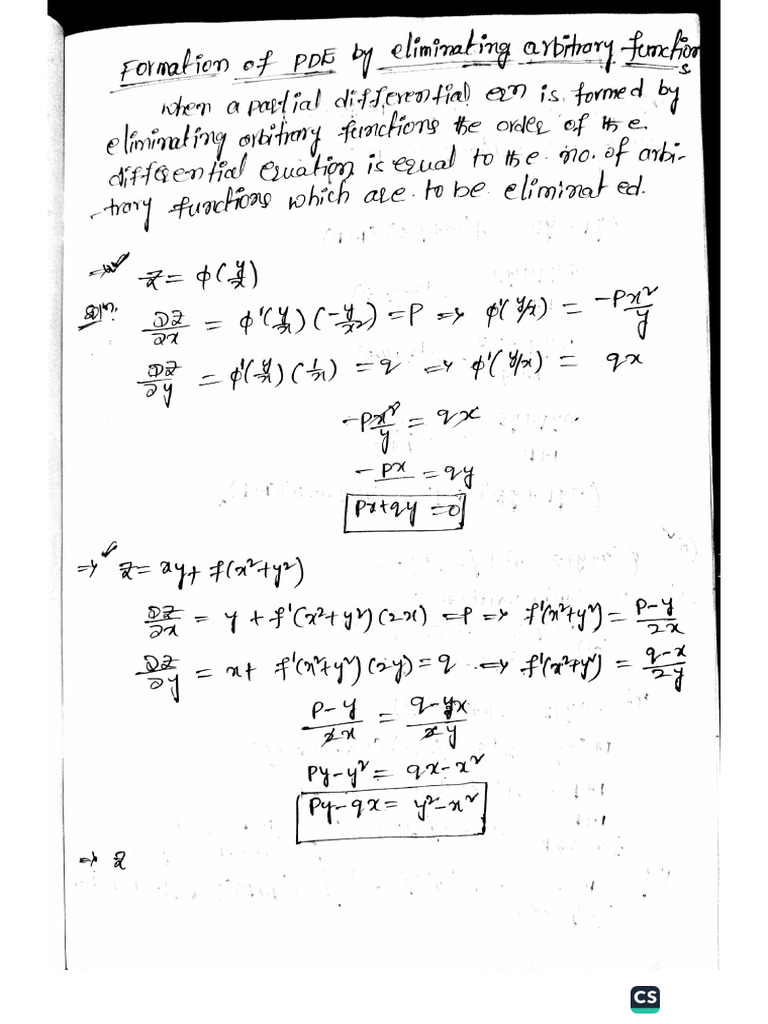 Formation of PDE by eliminating arbitrary functions
when a partial differential eqn is formed by
eliminating arbitrary functions the order of the
differential equation is equal to the no. of arbi-
-trary functions which are to be eliminated.
⇒ ✓ z = φ(y/x)
Soln:
∂z/∂x = φ'(y/x) (-y/x²) = P ⇒ φ'(y/x) = -Px²/y
∂z/∂y = φ'(y/x) (1/x) = q ⇒ φ'(y/x) = qx
-Px²/y = qx
-Px = qy
Px+qy = 0
⇒ ✓ z = xy + f(x²+y²)
∂z/∂x = y + f'(x²+y²)(2x) = P ⇒ f'(x²+y²) = P-y/2x
∂z/∂y = x + f'(x²+y²)(2y) = q ⇒ f'(x²+y²) = q-x/2y
P-y/2x = q-x/2y
Py-y² = qx-x²
Py-qx = y²-x²
⇒ z
CS